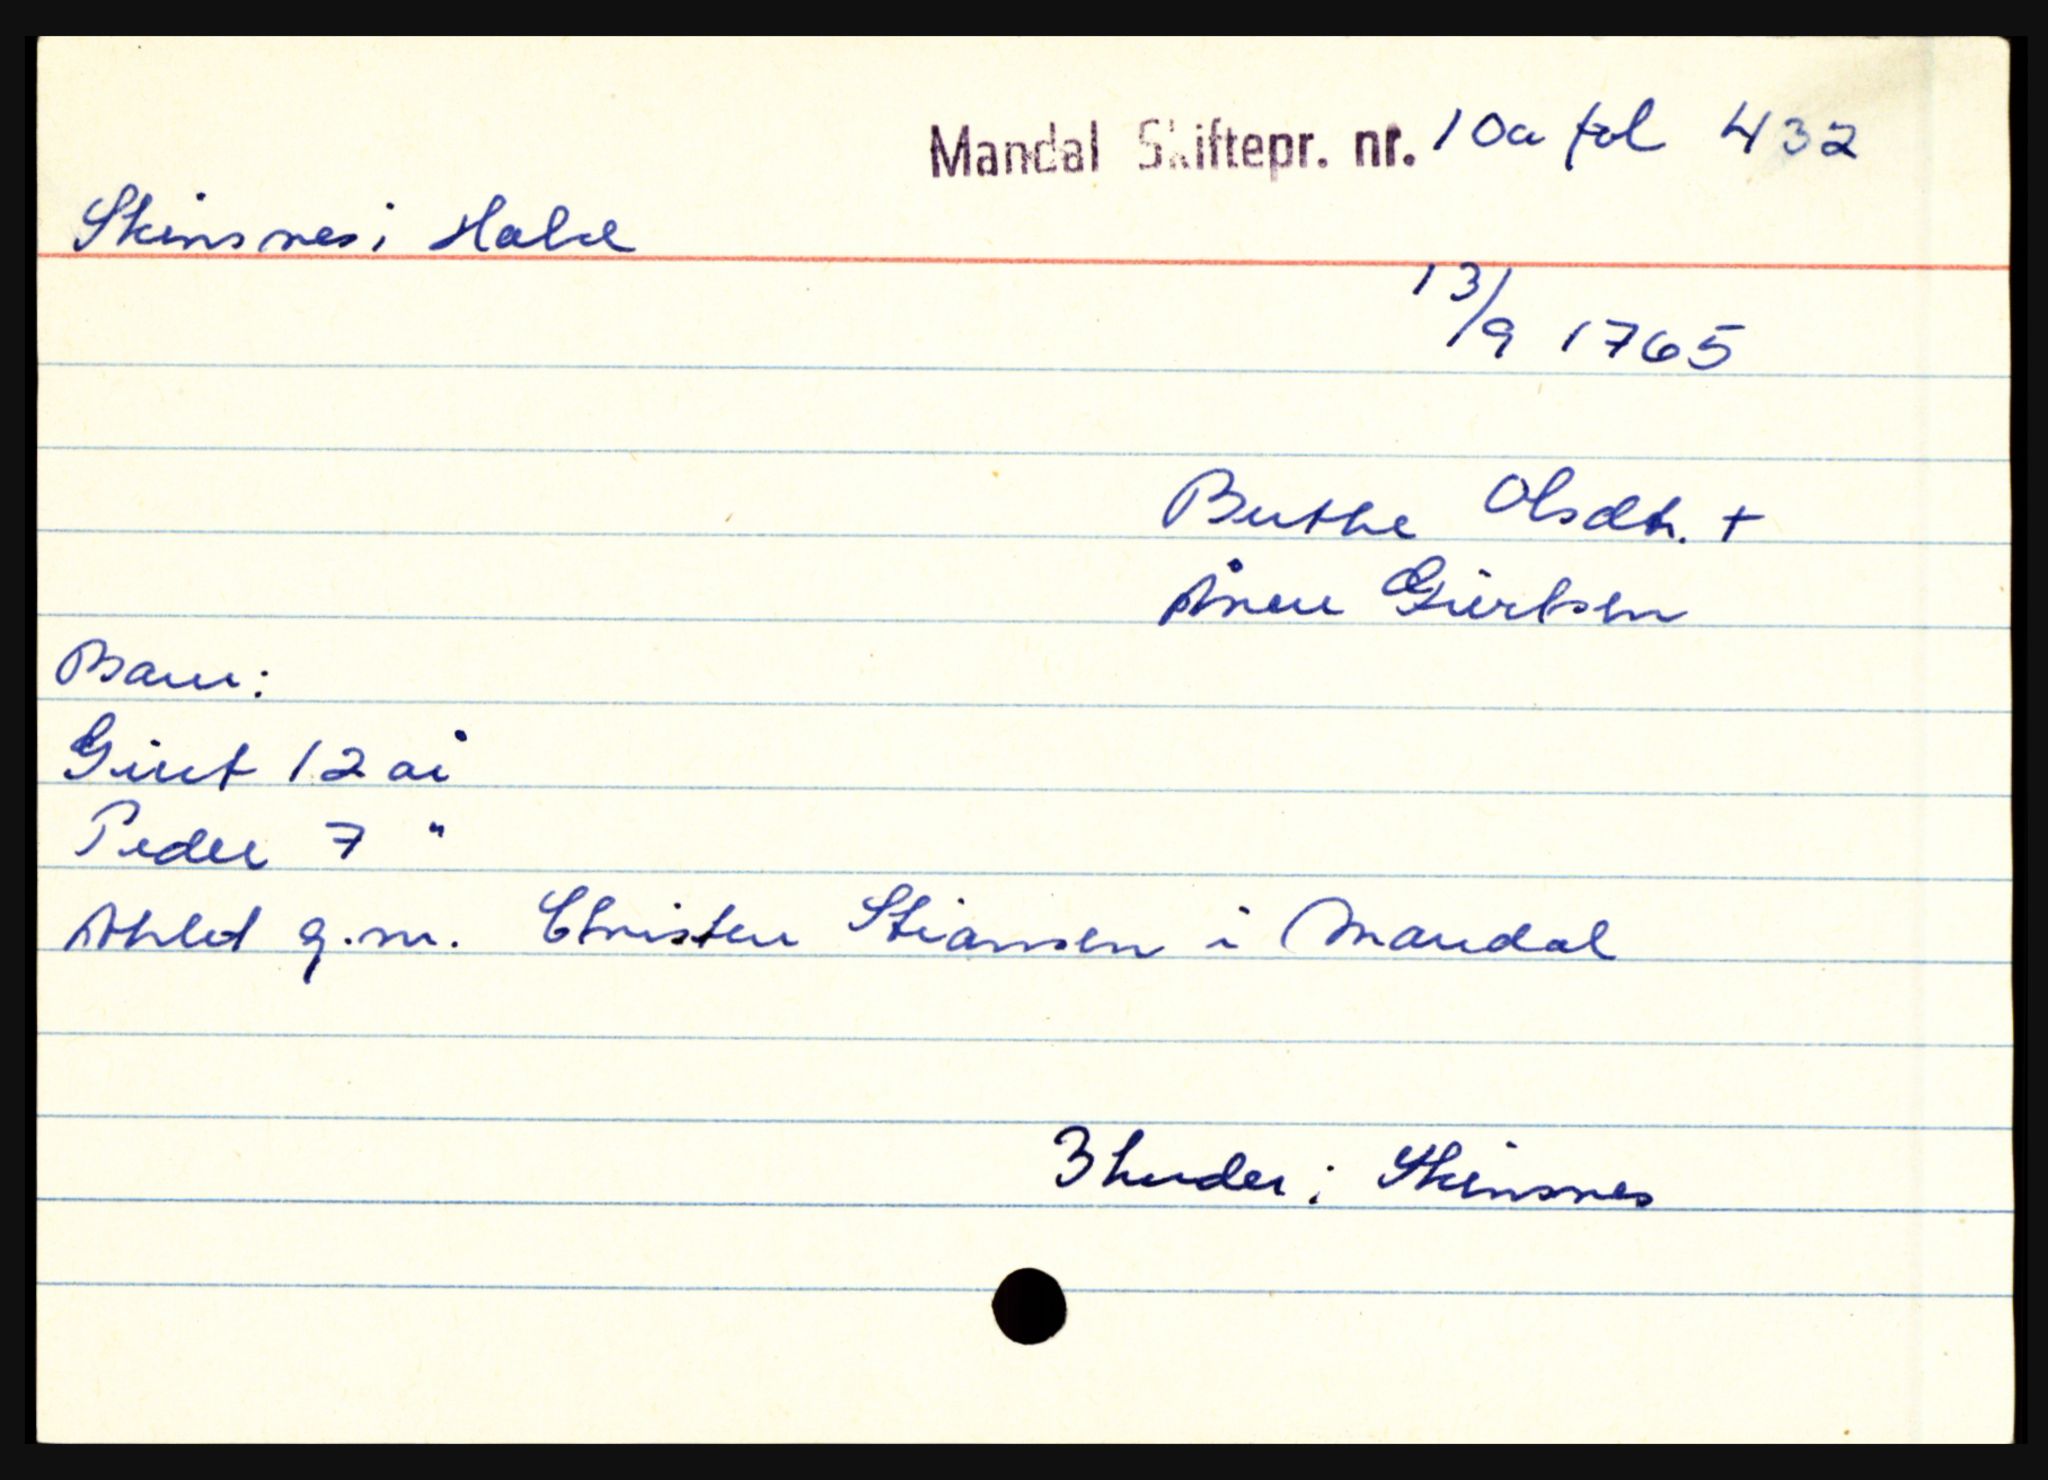 Mandal Skiftepr. nr. 10a fol 432
Skinsnes i Halse
13/9 1765
Berthe Olsdtr. +
Ånen Giertsen
Barn:
Giert 12 år
Peder 7 "
Ahlet g.m. Christen Stiansen i Mandal
3 huder i Skinsnes